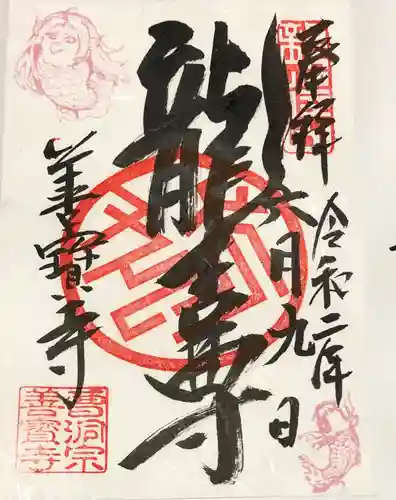 奉拝
令和二年
六月九日
龍華尊
善寳寺
曹洞宗
善寳寺